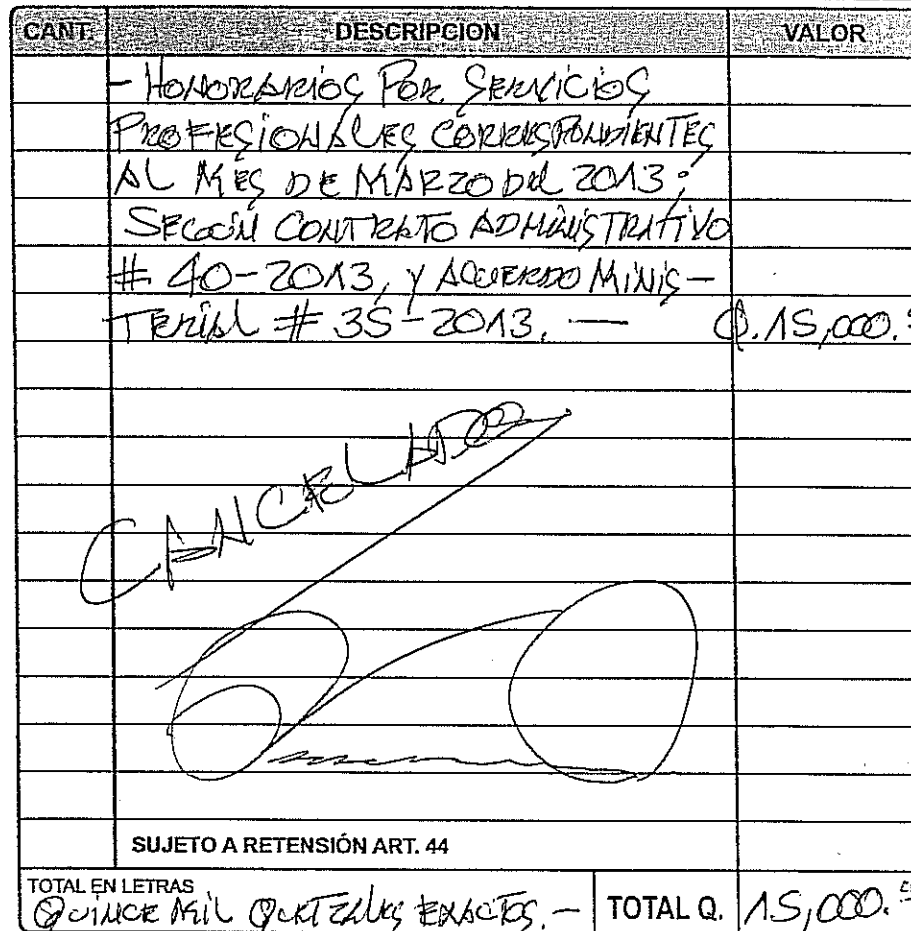 CANT. DESCRIPCION VALOR
- HONORARIOS POR SERVICIOS
PROFESIONALES CORRESPONDIENTES
AL MES DE MARZO DEL 2013;
CONTRATO ADMINISTRATIVO
# 40-2013, Y ACUERDO MINIS-
TERIAL # 35-2013. — Q.15,000.
CANCELADO
SUJETO A RETENSIÓN ART. 44
TOTAL EN LETRAS
QUINCE MIL QUETZALES EXACTOS. — TOTAL Q. 15,000.